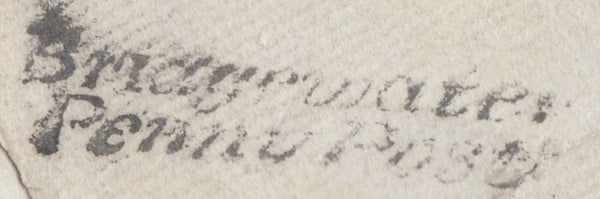 Bridgewater
Penny Post